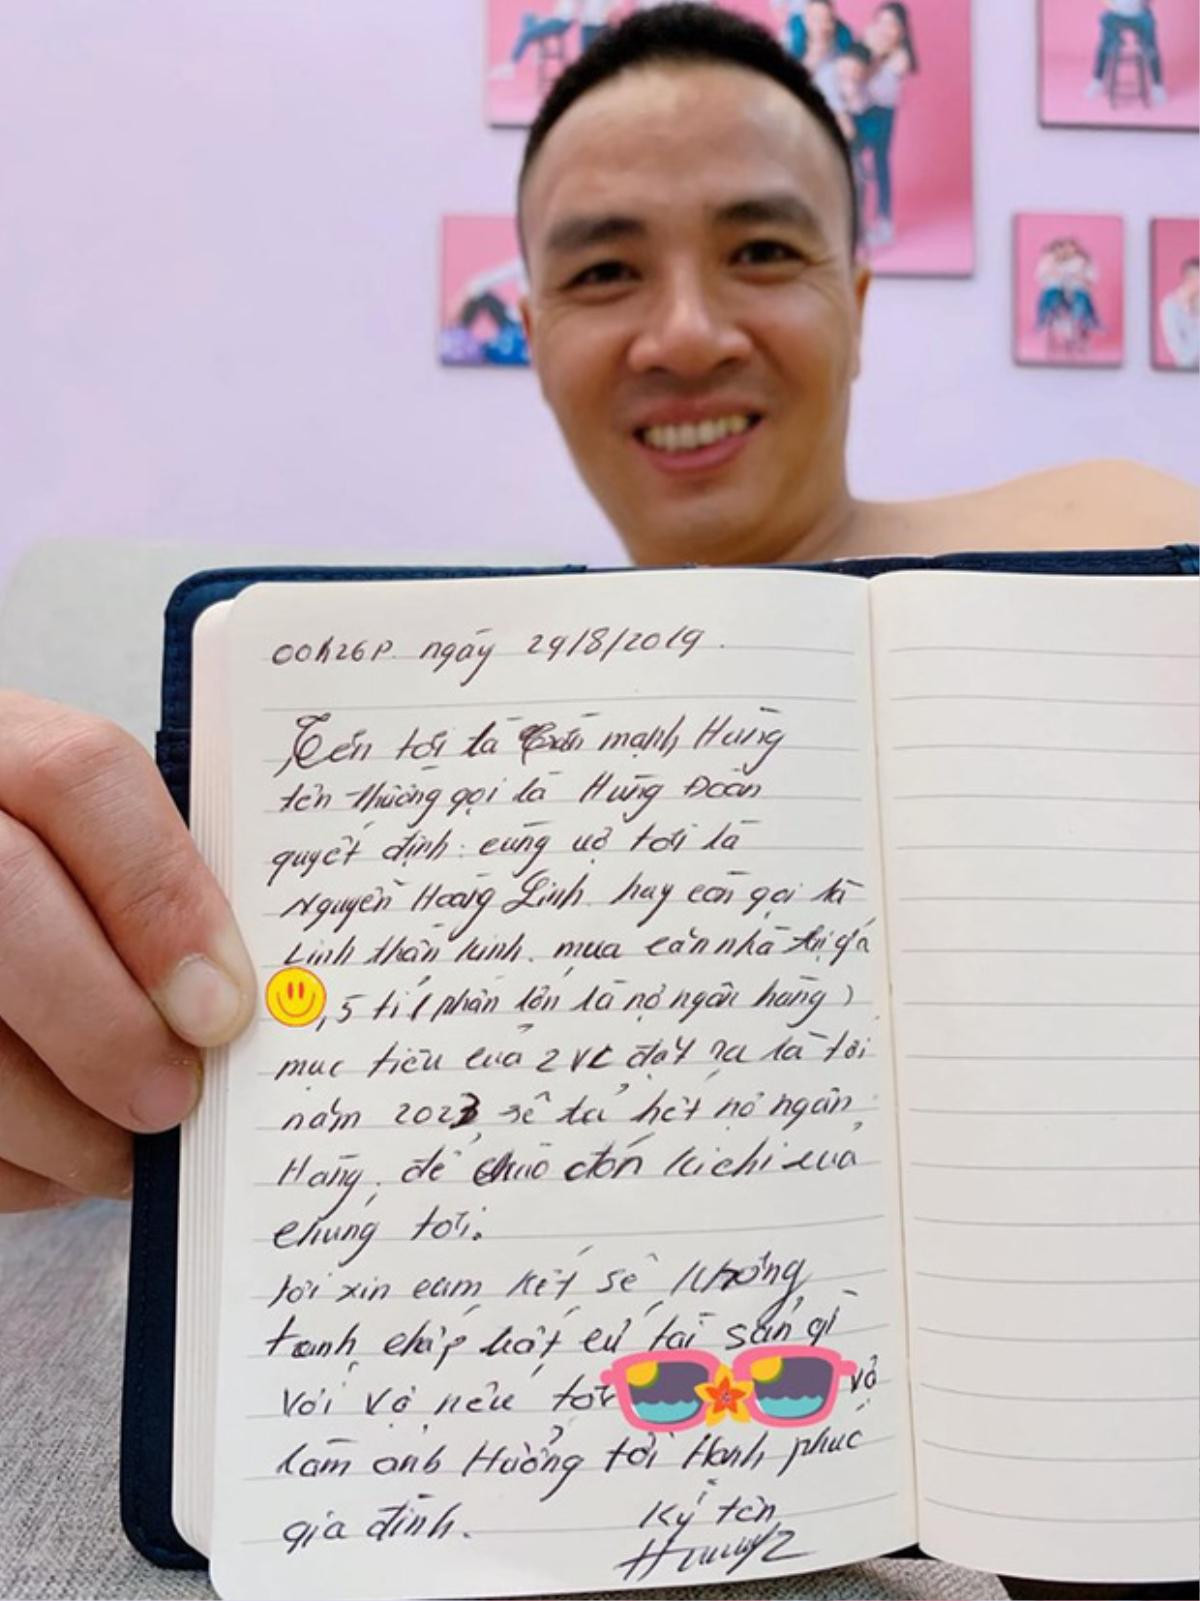 00h26p. ngày 29/8/2019.
Tên tôi là Trần mạnh Hùng
tên thường gọi là Hùng Đoàn
quyết định: cùng vợ tôi là
Nguyễn Hoàng Linh. hay còn gọi là
Linh thần kinh. mua căn nhà trị giá
,5 tỉ (phần lớn là nợ ngân hàng)
mục tiêu của 2 VC đặt ra là tới
năm 2023 sẽ trả hết nợ ngân
Hàng, để chào đón kichi của
chúng tôi.
tôi xin cam kết sẽ không
tranh chấp bất cứ tài sản gì
với vợ nếu tôi vợ
làm ảnh Hưởng tới Hạnh phúc
gia đình.
Ký tên